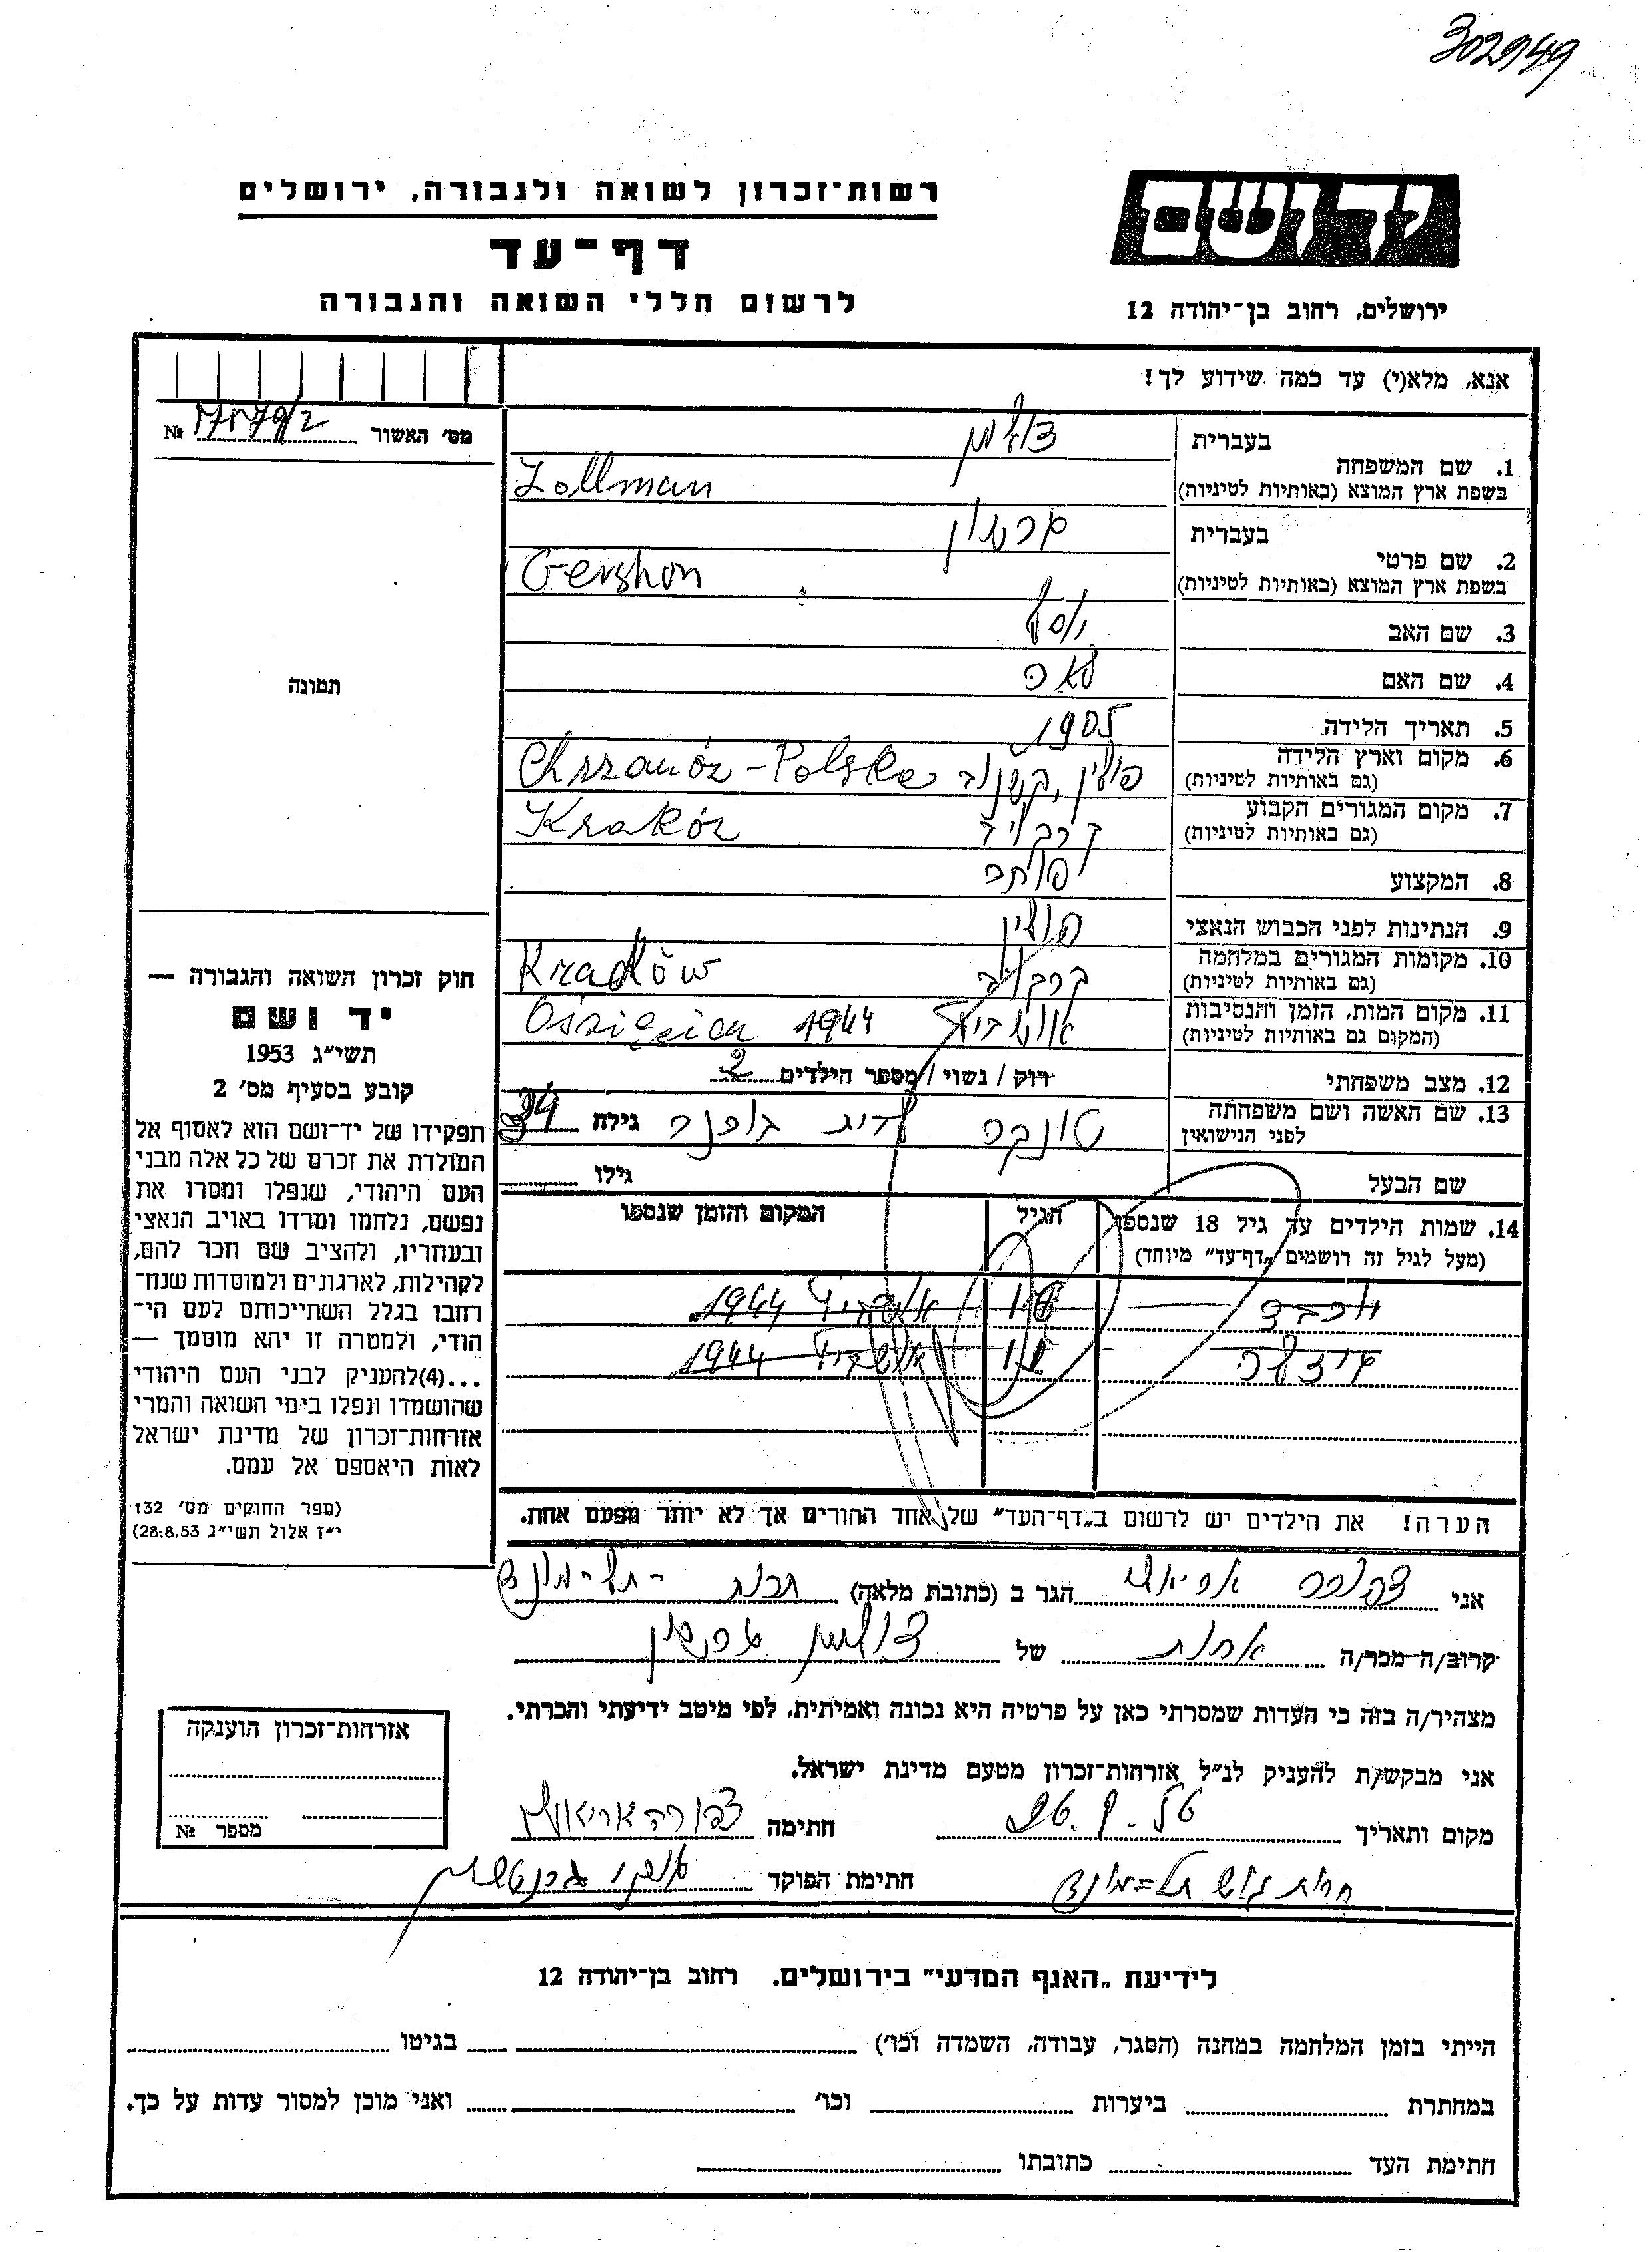 302949
רשות־זכרון לשואה ולגבורה, ירושלים
יד ושם
דף־עד
לרשום חללי השואה והגבורה
ירושלים, רחוב בן־יהודה 12
אנא, מלא(י) עד כמה שידוע לך!
מס׳ האשור №
1. שם המשפחה
בעברית צולמן
בשפת ארץ המוצא (באותיות לטיניות) Zollman
2. שם פרטי
בעברית גרשון
בשפת ארץ המוצא (באותיות לטיניות) Gershon
3. שם האב יוסף
4. שם האם לאה
תמונה
5. תאריך הלידה 1905
6. מקום וארץ הלידה פולין, קשנוב Chrzanów - Polska
(גם באותיות לטיניות)
7. מקום המגורים הקבוע Kraków
(גם באותיות לטיניות)
8. המקצוע
9. הנתינות לפני הכבוש הנאצי פולין
10. מקומות המגורים במלחמה קרקוב Kraków
(גם באותיות לטיניות)
11. מקום המות, הזמן והנסיבות אושביץ 1944 Oświęcim
(המקום גם באותיות לטיניות)
12. מצב משפחתי רוק / נשוי / מספר הילדים 2
13. שם האשה ושם משפחתה טונקה לבית גילה 34
לפני הנישואין
שם הבעל גילו
14. שמות הילדים עד גיל 18 שנספו הגיל המקום והזמן שנספו
(מעל לגיל זה רושמים „דף־עד” מיוחד)
אושביץ 1944
אושביץ 1944
הערה! את הילדים יש לרשום ב„דף־העד” של אחד ההורים אך לא יותר מפעם אחת.
חוק זכרון השואה והגבורה —
יד ושם
תשי״ג 1953
קובע בסעיף מס׳ 2
תפקידו של יד־ושם הוא לאסוף אל
המולדת את זכרם של כל אלה מבני
העם היהודי, שנפלו ומסרו את
נפשם, נלחמו ומרדו באויב הנאצי
ובעוזריו, ולהציב שם וזכר להם,
לקהילות, לארגונים ולמוסדות שנח־
רבו בגלל השתייכותם לעם הי־
הודי, ולמטרה זו יהא מוסמך —
...(4)להעניק לבני העם היהודי
שהושמדו ונפלו בימי השואה והמרי
אזרחות־זכרון של מדינת ישראל
לאות היאספם אל עמם.
(ספר החוקים מס׳ 132
י״ז אלול תשי״ג 28.8.53)
אני צפורה אריאלי הגר ב (כתובת מלאה) חרות - תל-מונד
קרוב/ה מכר/ה אחות של צולמן גרשון
מצהיר/ה בזה כי העדות שמסרתי כאן על פרטיה היא נכונה ואמיתית, לפי מיטב ידיעתי והכרתי.
אני מבקש/ת להעניק לנ״ל אזרחות־זכרון מטעם מדינת ישראל.
מקום ותאריך חתימה צפורה אריאלי
חרות גוש תל-מונד חתימת הפוקד
אזרחות־זכרון הוענקה
מספר №
לידיעת „האגף המדעי” בירושלים. רחוב בן־יהודה 12
הייתי בזמן המלחמה במחנה (הסגר, עבודה, השמדה וכו׳) בגיטו
במחתרת ביערות וכו׳ ואני מוכן למסור עדות על כך.
חתימת העד כתובתו